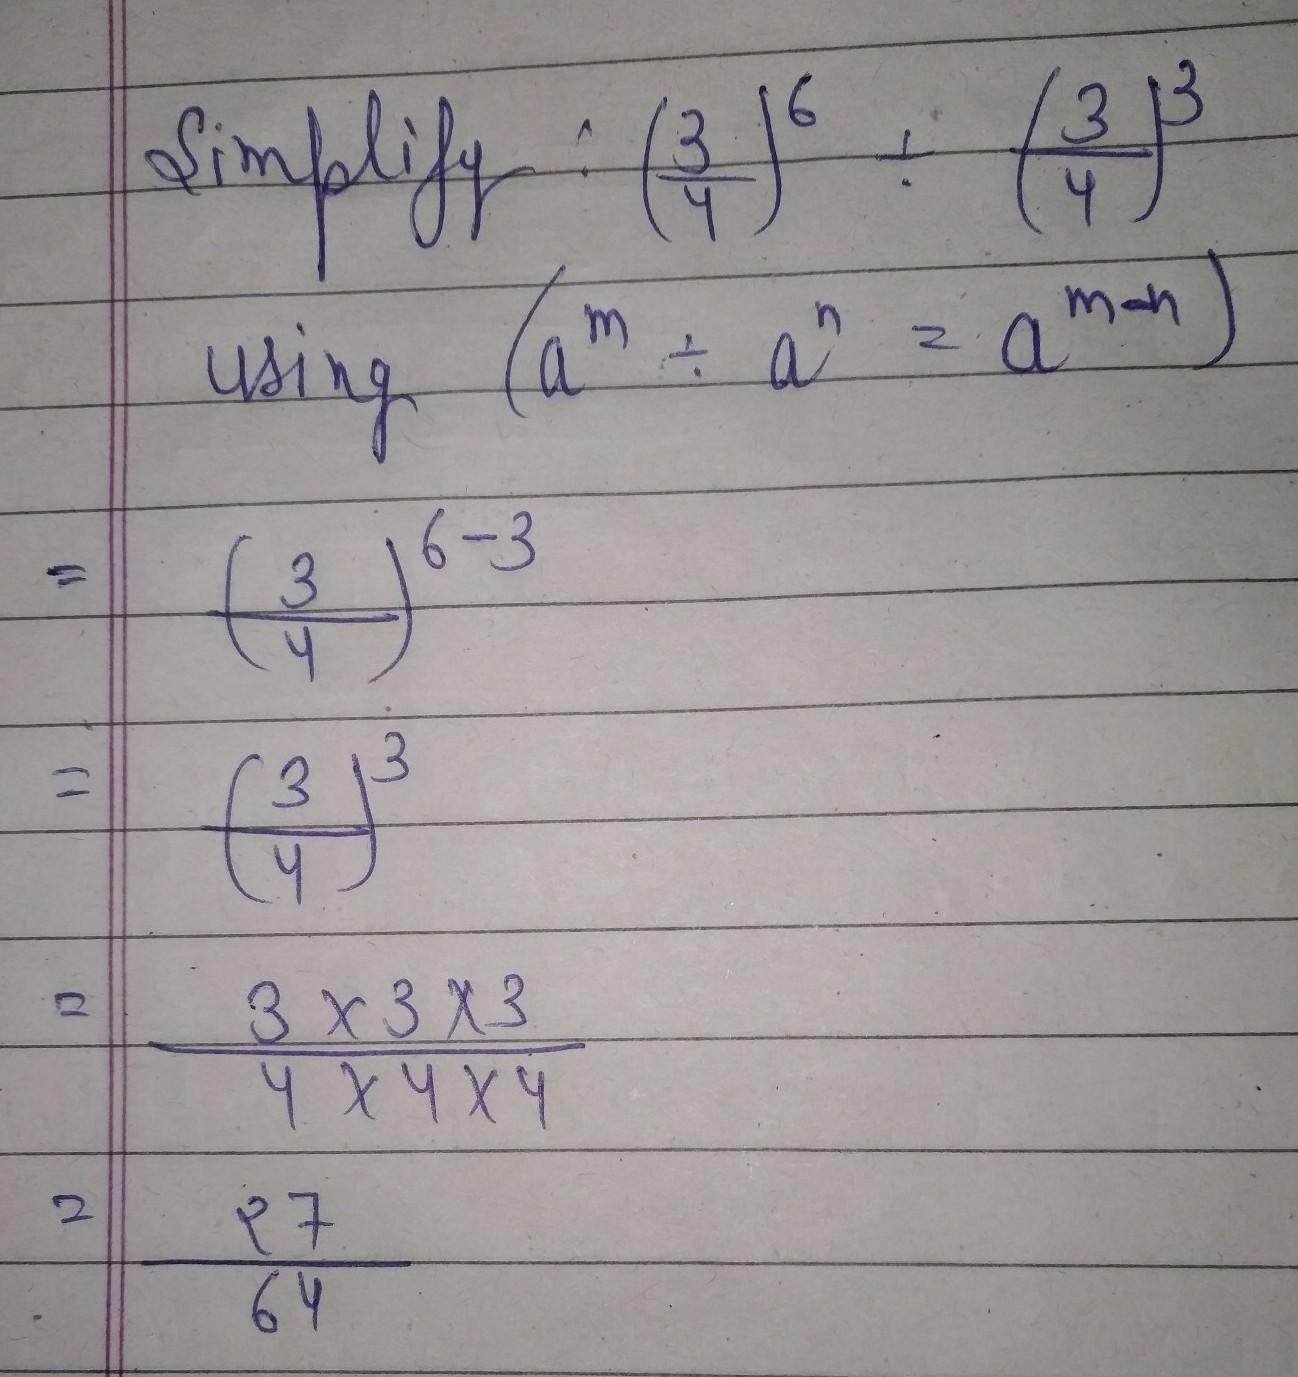 Simplify : (3/4)^6 ÷ (3/4)^3
using (a^m ÷ a^n = a^(m-n))
= (3/4)^(6-3)
= (3/4)^3
= 3 × 3 × 3 / 4 × 4 × 4
= 27/64